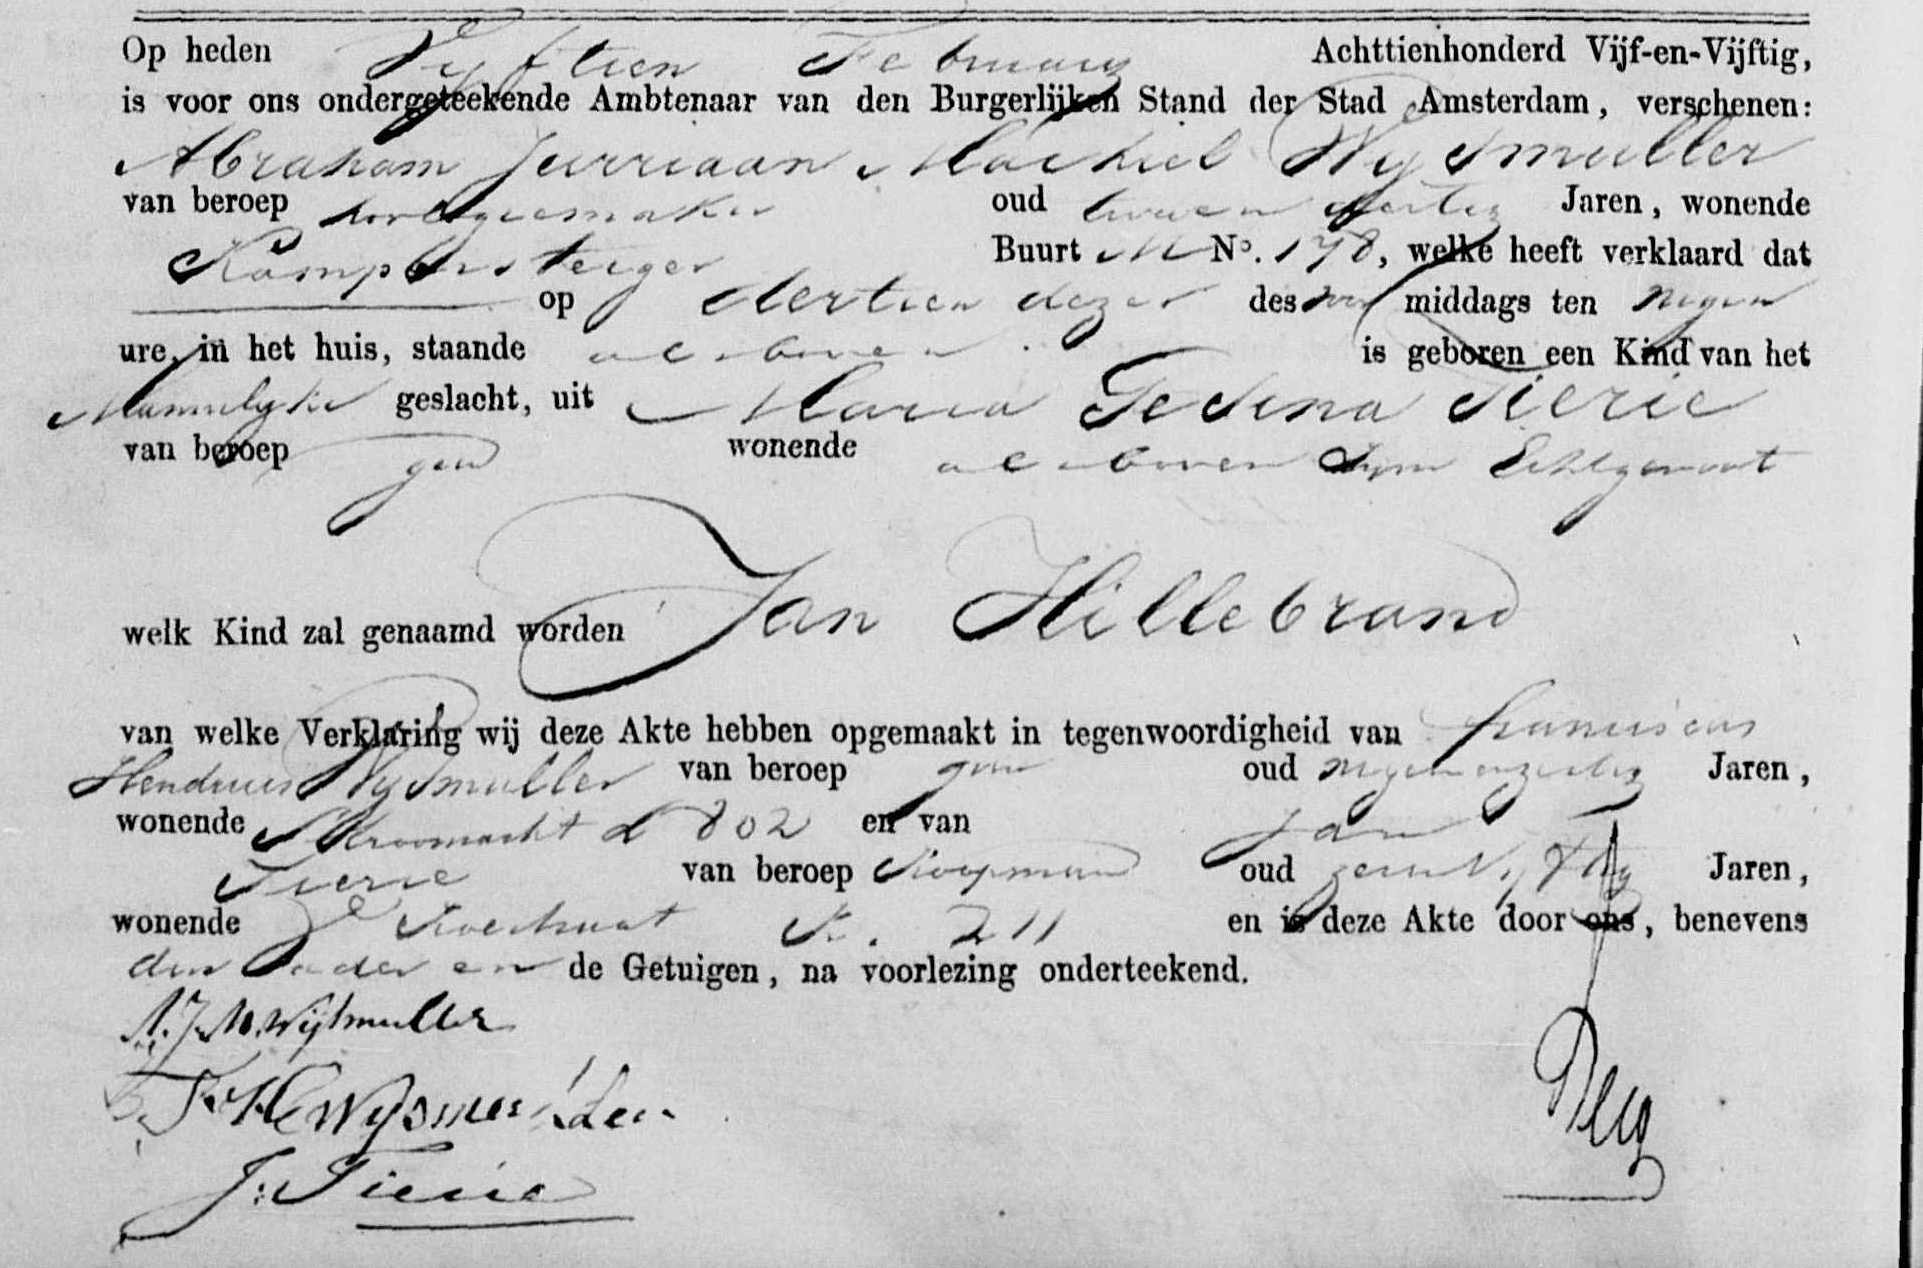 Op heden Vyftien February Achttienhonderd Vijf-en-Vijftig,
is voor ons ondergeteekende Ambtenaar van den Burgerlijken Stand der Stad Amsterdam, verschenen:
Abraham Jurriaan Machiel Wysmuller
van beroep horlogiemaker oud tweeendertig Jaren, wonende
Kampersteiger Buurt M No. 178, welke heeft verklaard dat
op dertien dezer des voor middags ten negen
ure, in het huis, staande als boven is geboren een Kind van het
Mannelyke geslacht, uit Maria Gesina Tierie
van beroep geen wonende als boven zyne Echtgenoot
welk Kind zal genaamd worden Jan Hillebrand
van welke Verklaring wij deze Akte hebben opgemaakt in tegenwoordigheid van Franciscus
Hendricus Wysmuller van beroep geen oud negenenzestig Jaren,
wonende 802 en van Jan
Tierie van beroep Koopman oud Jaren,
wonende 211 en is deze Akte door ons, benevens
den Vader en de Getuigen, na voorlezing onderteekend.
A. J. M. Wijsmuller
F. H. Wysmuller
J: Tierie